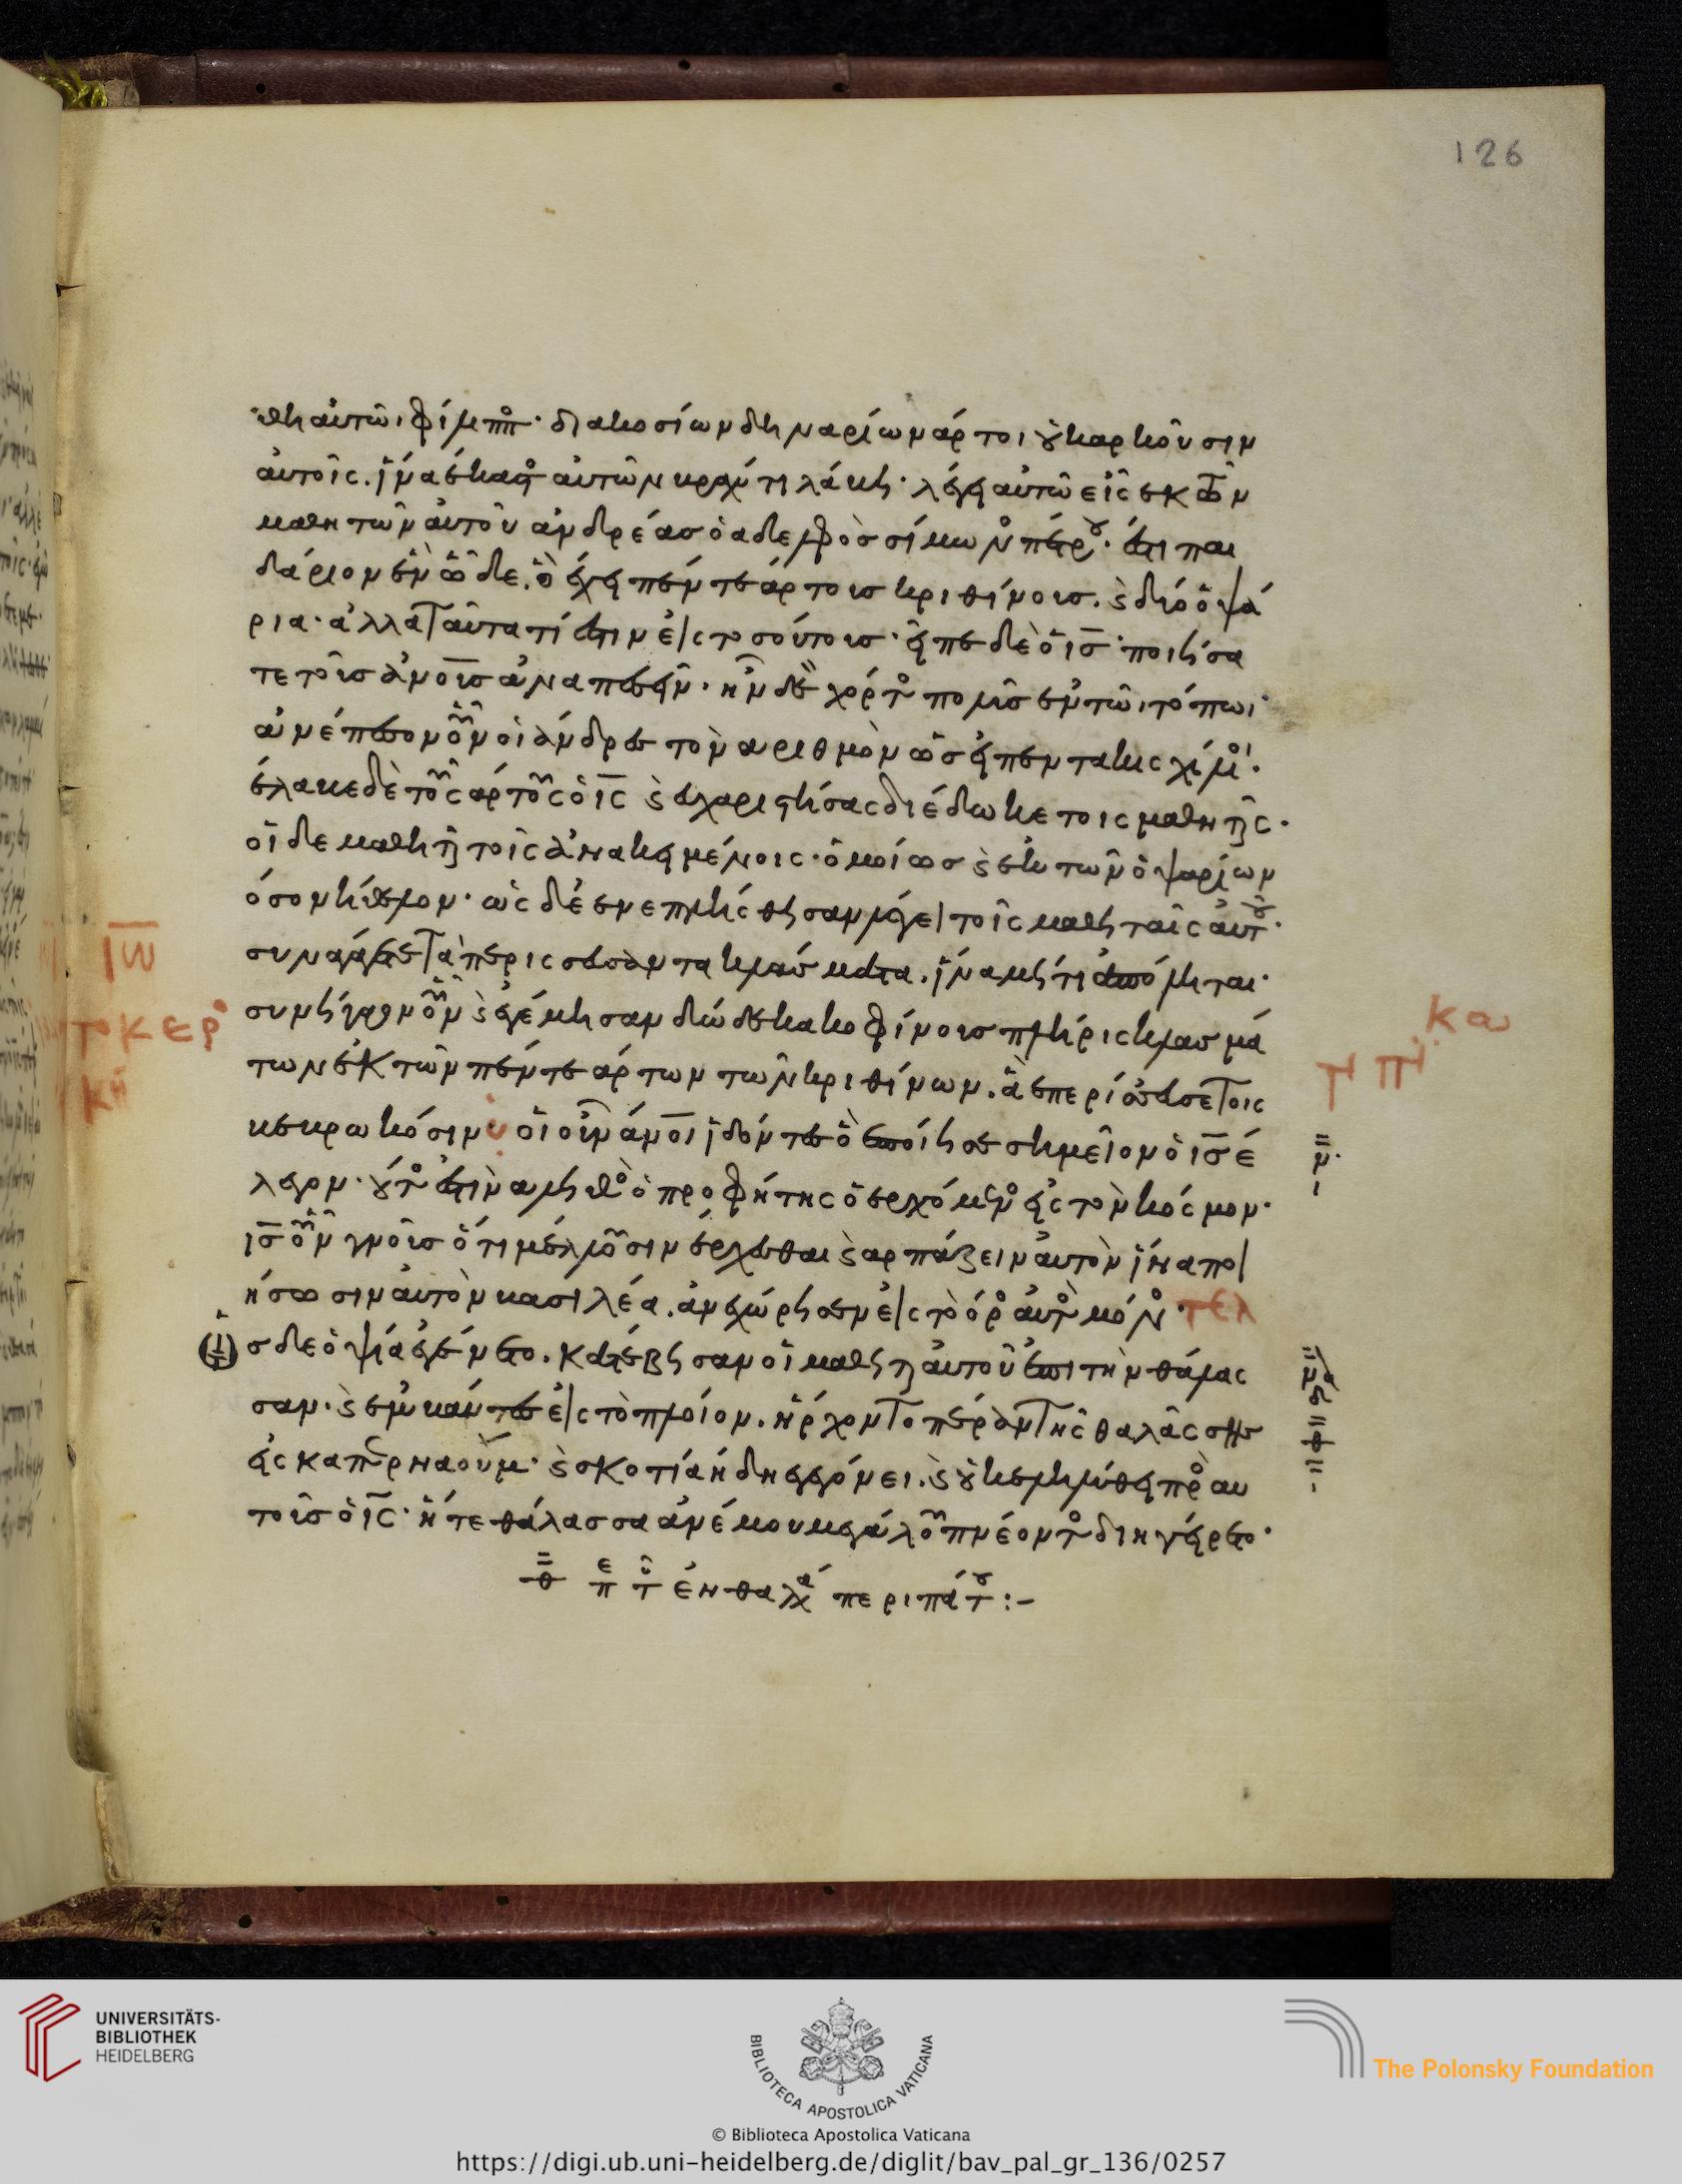 126
θη αὐτῶι φίλιππος· διακοσίων δηναρίων ἄρτοι οὐκ ἀρκοῦσιν
αὐτοῖς. ἵνα ἕκαστος αὐτῶν βραχύ τι λάβη· λέγει αὐτῶ εἷς ἐκ τῶν
μαθητῶν αὐτοῦ ἀνδρέας ὁ ἀδελφὸς σίμωνος πέτρου· ἔστι παι
δάριον ἓν ὧδε. ὃ ἔχει πέντε ἄρτους κριθίνους. καὶ δύο ὀψά
ρια· ἀλλὰ ταῦτα τί ἐστιν εἰς τοσούτους· εἶπε δὲ ὁ ις· ποιήσα
τε τοὺς ἀνους ἀναπεσεῖν· ἦν δὲ χόρτος πολὺς ἐν τῶι τόπωι·
ἀνέπεσον οὖν οἱ ἄνδρες τὸν ἀριθμὸν ὡσεὶ πεντακισχίλιοι·
ἔλαβε δὲ τοὺς ἄρτους ὁ ις καὶ εὐχαριστήσας διέδωκε τοις μαθηταῖς·
οἱ δὲ μαθηταὶ τοῖς ἀνακειμένοις· ὁμοίως καὶ ἐκ τῶν ὀψαρίων
ὅσον ἤθελον· ὡς δὲ ἐνεπλήσθησαν λέγει τοῖς μαθηταῖς αὐτοῦ·
συναγάγετε τὰ περισσεύσαντα κλάσματα. ἵνα μή τι ἀπόληται·
συνήγαγον οὖν καὶ ἐγέμισαν δώδεκα κοφίνους πλήρις κλασμά
των ἐκ τῶν πέντε ἄρτων τῶν κριθίνων. ἃ ἐπερίσσευσε τοις
βεβρωκόσιν οἱ οὖν ἄνοι ἰδόντες ὃ ἐποίησε σημεῖον ὁ ις ἔ
λεγον· οὗτός ἐστιν ἀληθῶς ὁ προφήτης ὁ ἐρχόμενος εἰς τὸν κόσμον·
ις οὖν γνοὺς ὅτι μέλλουσιν ἔρχεσθαι καὶ ἁρπάζειν αὐτὸν ἵνα ποι
ήσωσιν αὐτὸν βασιλέα. ἀνεχώρησεν εἰς τὸ ὄρος αὐτὸς μόνος· τελ
ς δὲ ὀψία ἐγένετο. κατέβησαν οἱ μαθηταὶ αὐτοῦ ἐπι τὴν θάλας
σαν· καὶ ἐμβάντες εἰς τὸ πλοίον. ἤρχοντο πέραν τῆς θαλάσσης
εἰς καπερναούμ· καὶ σκοτία ἤδη ἐγεγόνει. καὶ οὐκ ἐληλύθει πρὸς αὐ
τοὺς ὁ ις· ἥ τε θάλασσα ἀνέμου μεγάλου πνέοντος διηγείρετο·
θ περὶ τοῦ ἐν θαλάσση περιπάτου :-
UNIVERSITÄTS-
BIBLIOTHEK
HEIDELBERG
BIBLIOTECA APOSTOLICA VATICANA
The Polonsky Foundation
© Biblioteca Apostolica Vaticana
https://digi.ub.uni-heidelberg.de/diglit/bav_pal_gr_136/0257